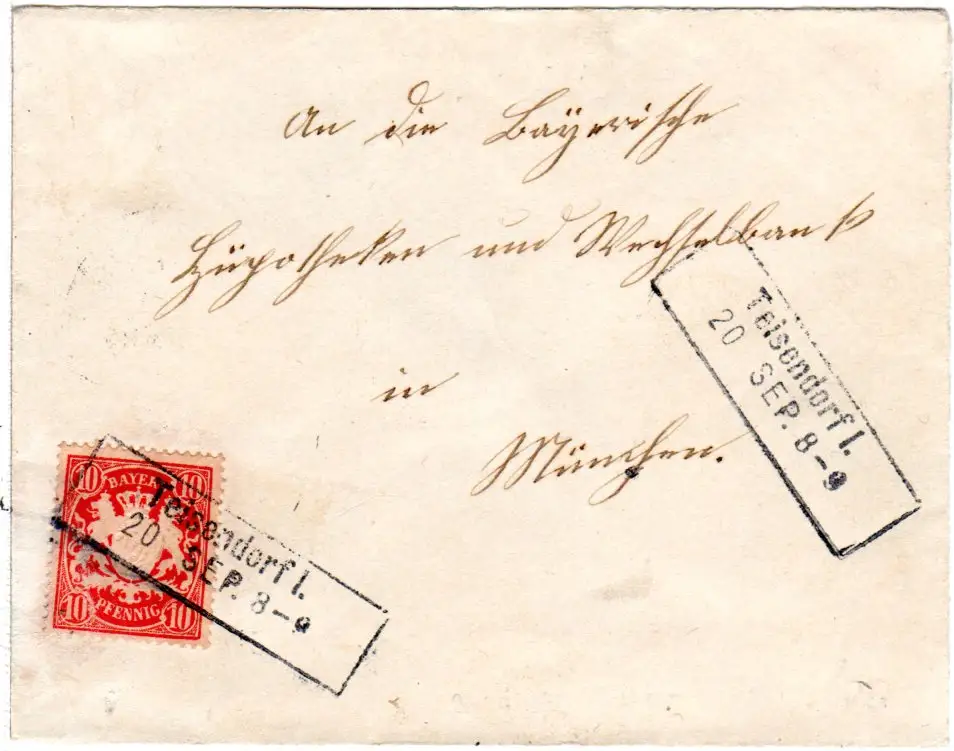 An die Bayerische
Hÿpotheken und Wechselbank
in
München.
Teisendorf I.
20 SEP. 8-9
10 BAYERN 10
Teisendorf I.
20 SEP. 8-9
10 PFENNIG 10